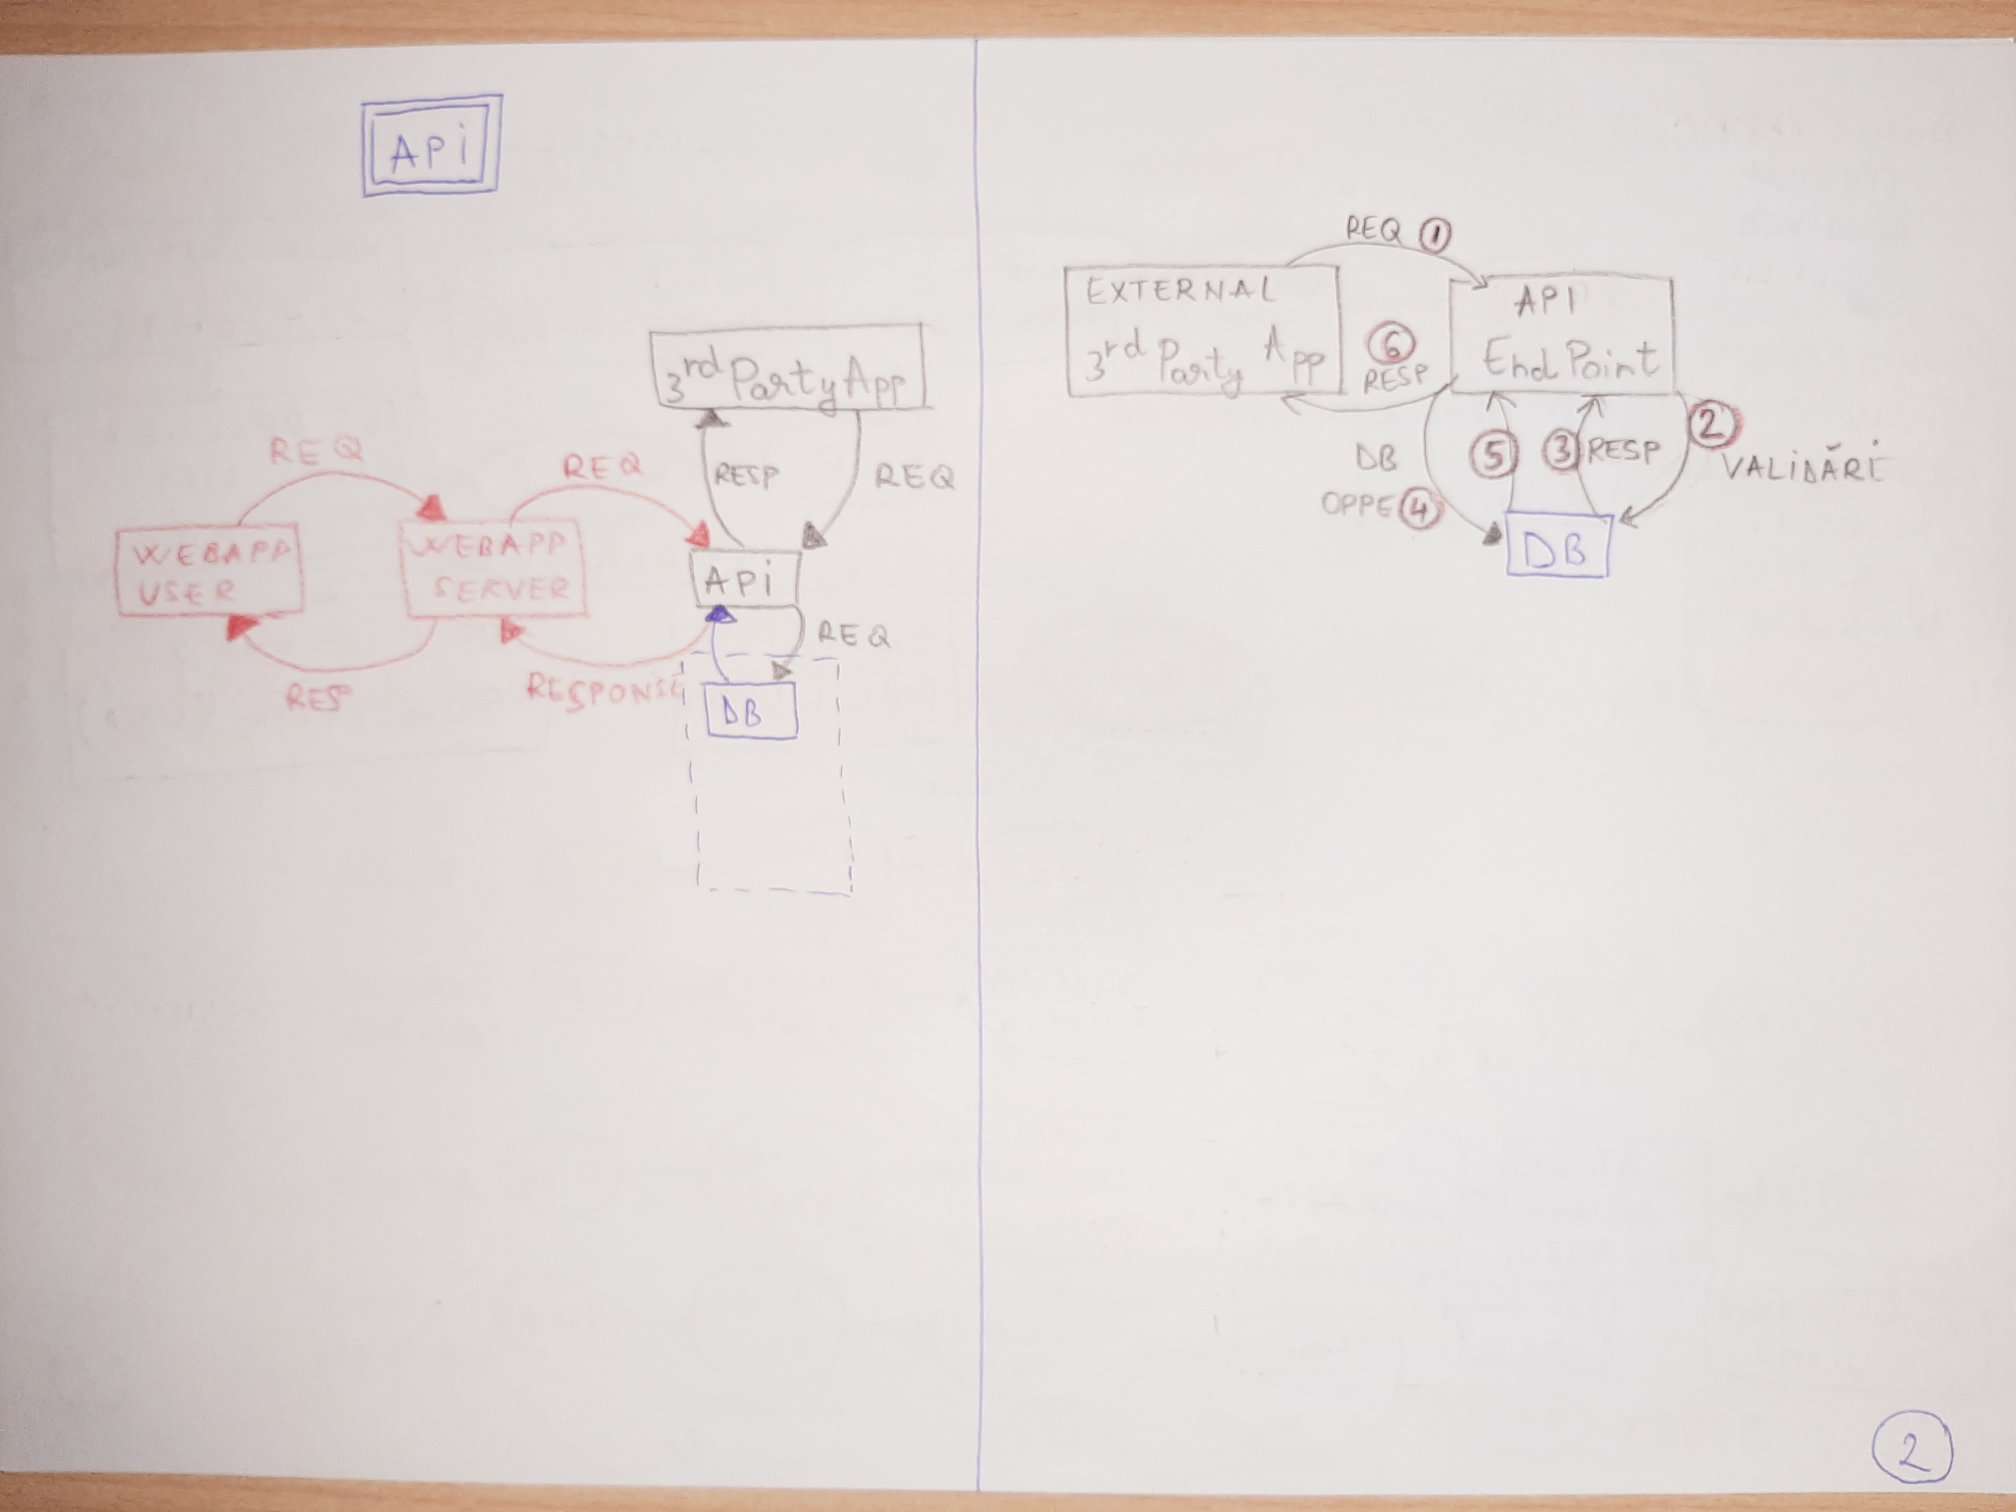 API
3rd Party App
RESP
REQ
REQ
REQ
WEBAPP
USER
WEBAPP
SERVER
API
REQ
RES
RESPONSE
DB
REQ 1
EXTERNAL
3rd Party App
6
RESP
API
End Point
2
VALIDĂRI
DB
OPPE 4
5
3 RESP
DB
2